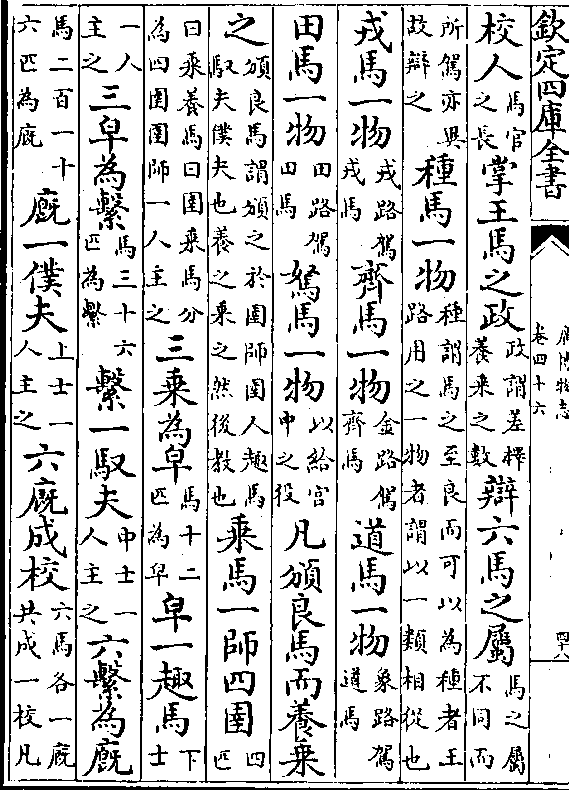 欽定四庫全書
廣博物志
卷四十六
校人馬官之長掌王馬之政政謂差擇養乘之數辯六馬之屬馬之屬不同而
所駕亦異故辯之種馬一物種謂馬之至良而可以為種者王路用之一物者謂以一類相從也
戎馬一物戎路駕戎馬齊馬一物金路駕齊馬道馬一物象路駕道馬
田馬一物田路駕田馬駑馬一物以給宮中之役凡頒良馬而養乗
之頒良馬謂頒之於圉師圉人趣馬馭夫僕夫也養之乘之然後教也乗馬一師四圉四匹
曰乘養馬曰圉乘馬分為四圉圉師一人主之三乗為皁馬十二匹為皁皁一趣馬下士
一人主之三皁為繫馬三十六匹為繫繫一馭夫中士一人主之六繫為廐
馬二百一十六匹為廐廐一僕夫上士一人主之六廐成校六馬各一廐共成一校凡